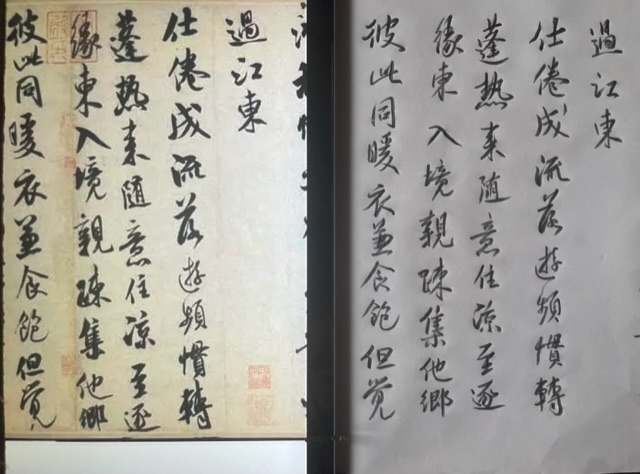 過江東
仕倦成流落遊頻慣轉
蓬熱来随意住涼至逐
緣東入境親疎集他鄉
彼此同暖衣兼食飽但覺
過江東
仕倦成流落遊頻慣轉
蓬熱来随意住涼至逐
緣東入境親疎集他鄉
彼此同暖衣兼食飽但覺